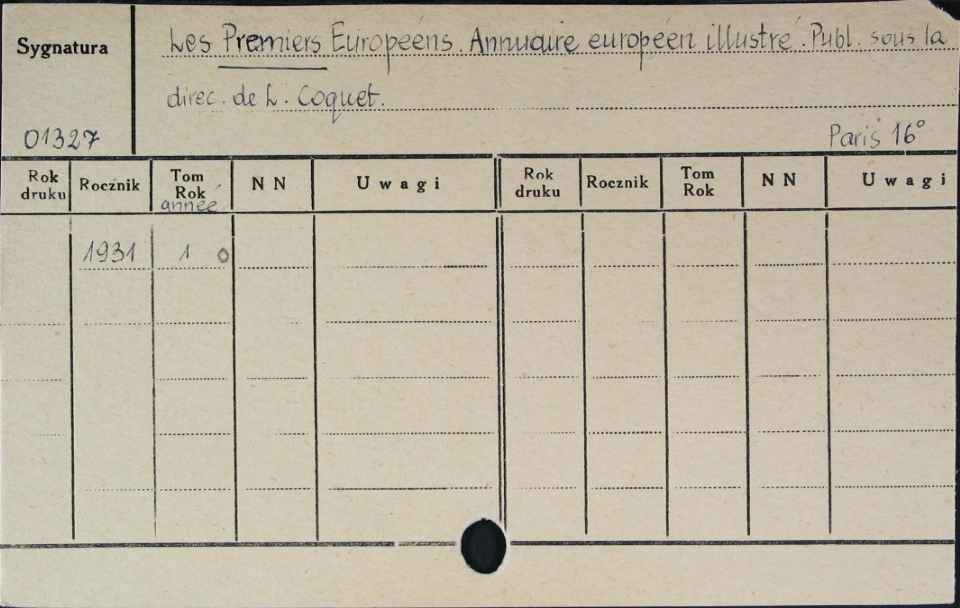 Sygnatura
Les Premiers Européens. Annuaire européen illustré. Publ. sous la
direc. de L. Coquet.
01327
Paris 16°
Rok druku Rocznik Tom Rok NN Uwagi Rok druku Rocznik Tom Rok NN Uwagi
année
1931 1 o